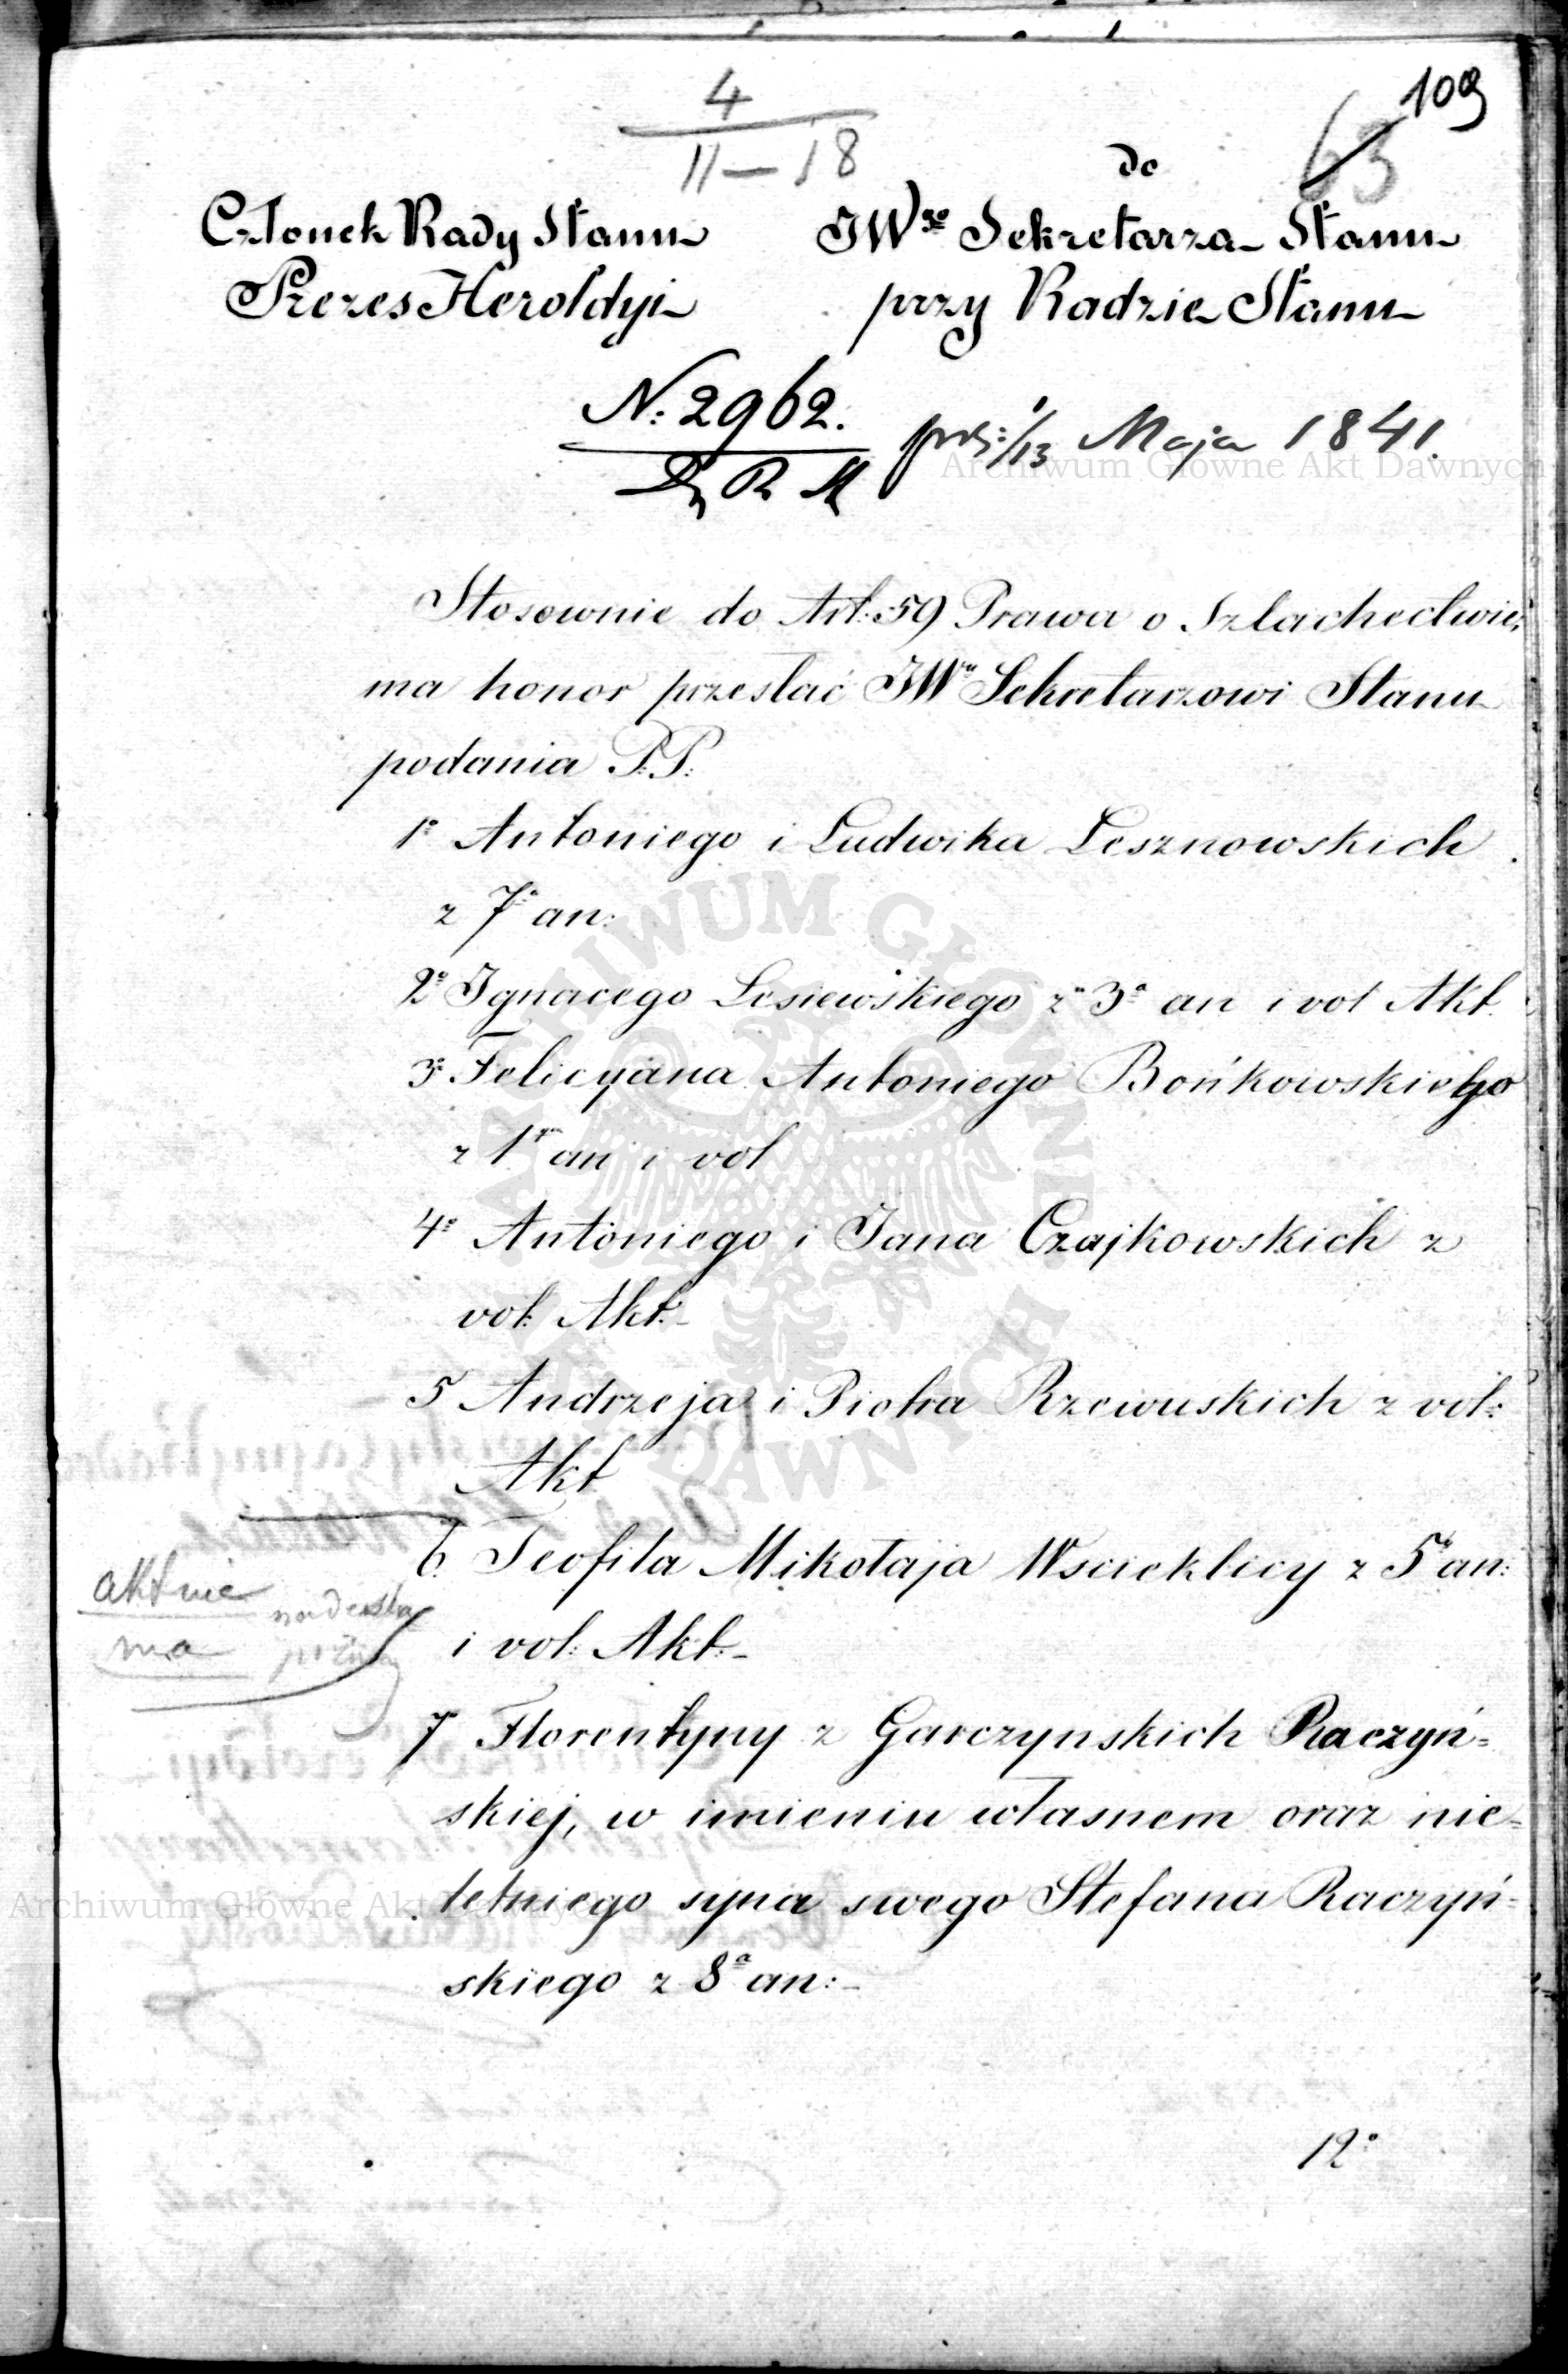 109
4
11–18
63
do
Członek Rady Stanu
JWgo Sekretarza Stanu
Prezes Heroldyi
przy Radzie Stanu
N: 2962.
1/13 Maja 1841.
Archiwum Główne Akt Dawnych
Stosownie do Art: 59 Prawa o Szlachectwie,
ma honor przesłać JWu Sekretarzowi Stanu
podania P.P.
1o Antoniego i Ludwika Lesznowskich
z 7a an:
2o Ignacego Lesiewskiego z 3a an i vol Akt.
3o Felicyana Antoniego Bońkowskiego
z 1ym an i vol
4o Antoniego i Jana Czajkowskich z
vol: Akt:
5 Andrzeja i Piotra Rzewuskich z vol:
Akt
6. Teofila Mikołaja Wscieklicy z 5u an:
i vol: Akt:
akt nie
ma
7o Florentyny z Garczynskich Raczyń=
skiej, w imieniu własnem oraz nie=
letniego syna swego Stefana Raczyń=
Archiwum Główne Akt Dawnych
skiego z 8a an:
12o
ARCHIWUM GŁÓWNE AKT DAWNYCH